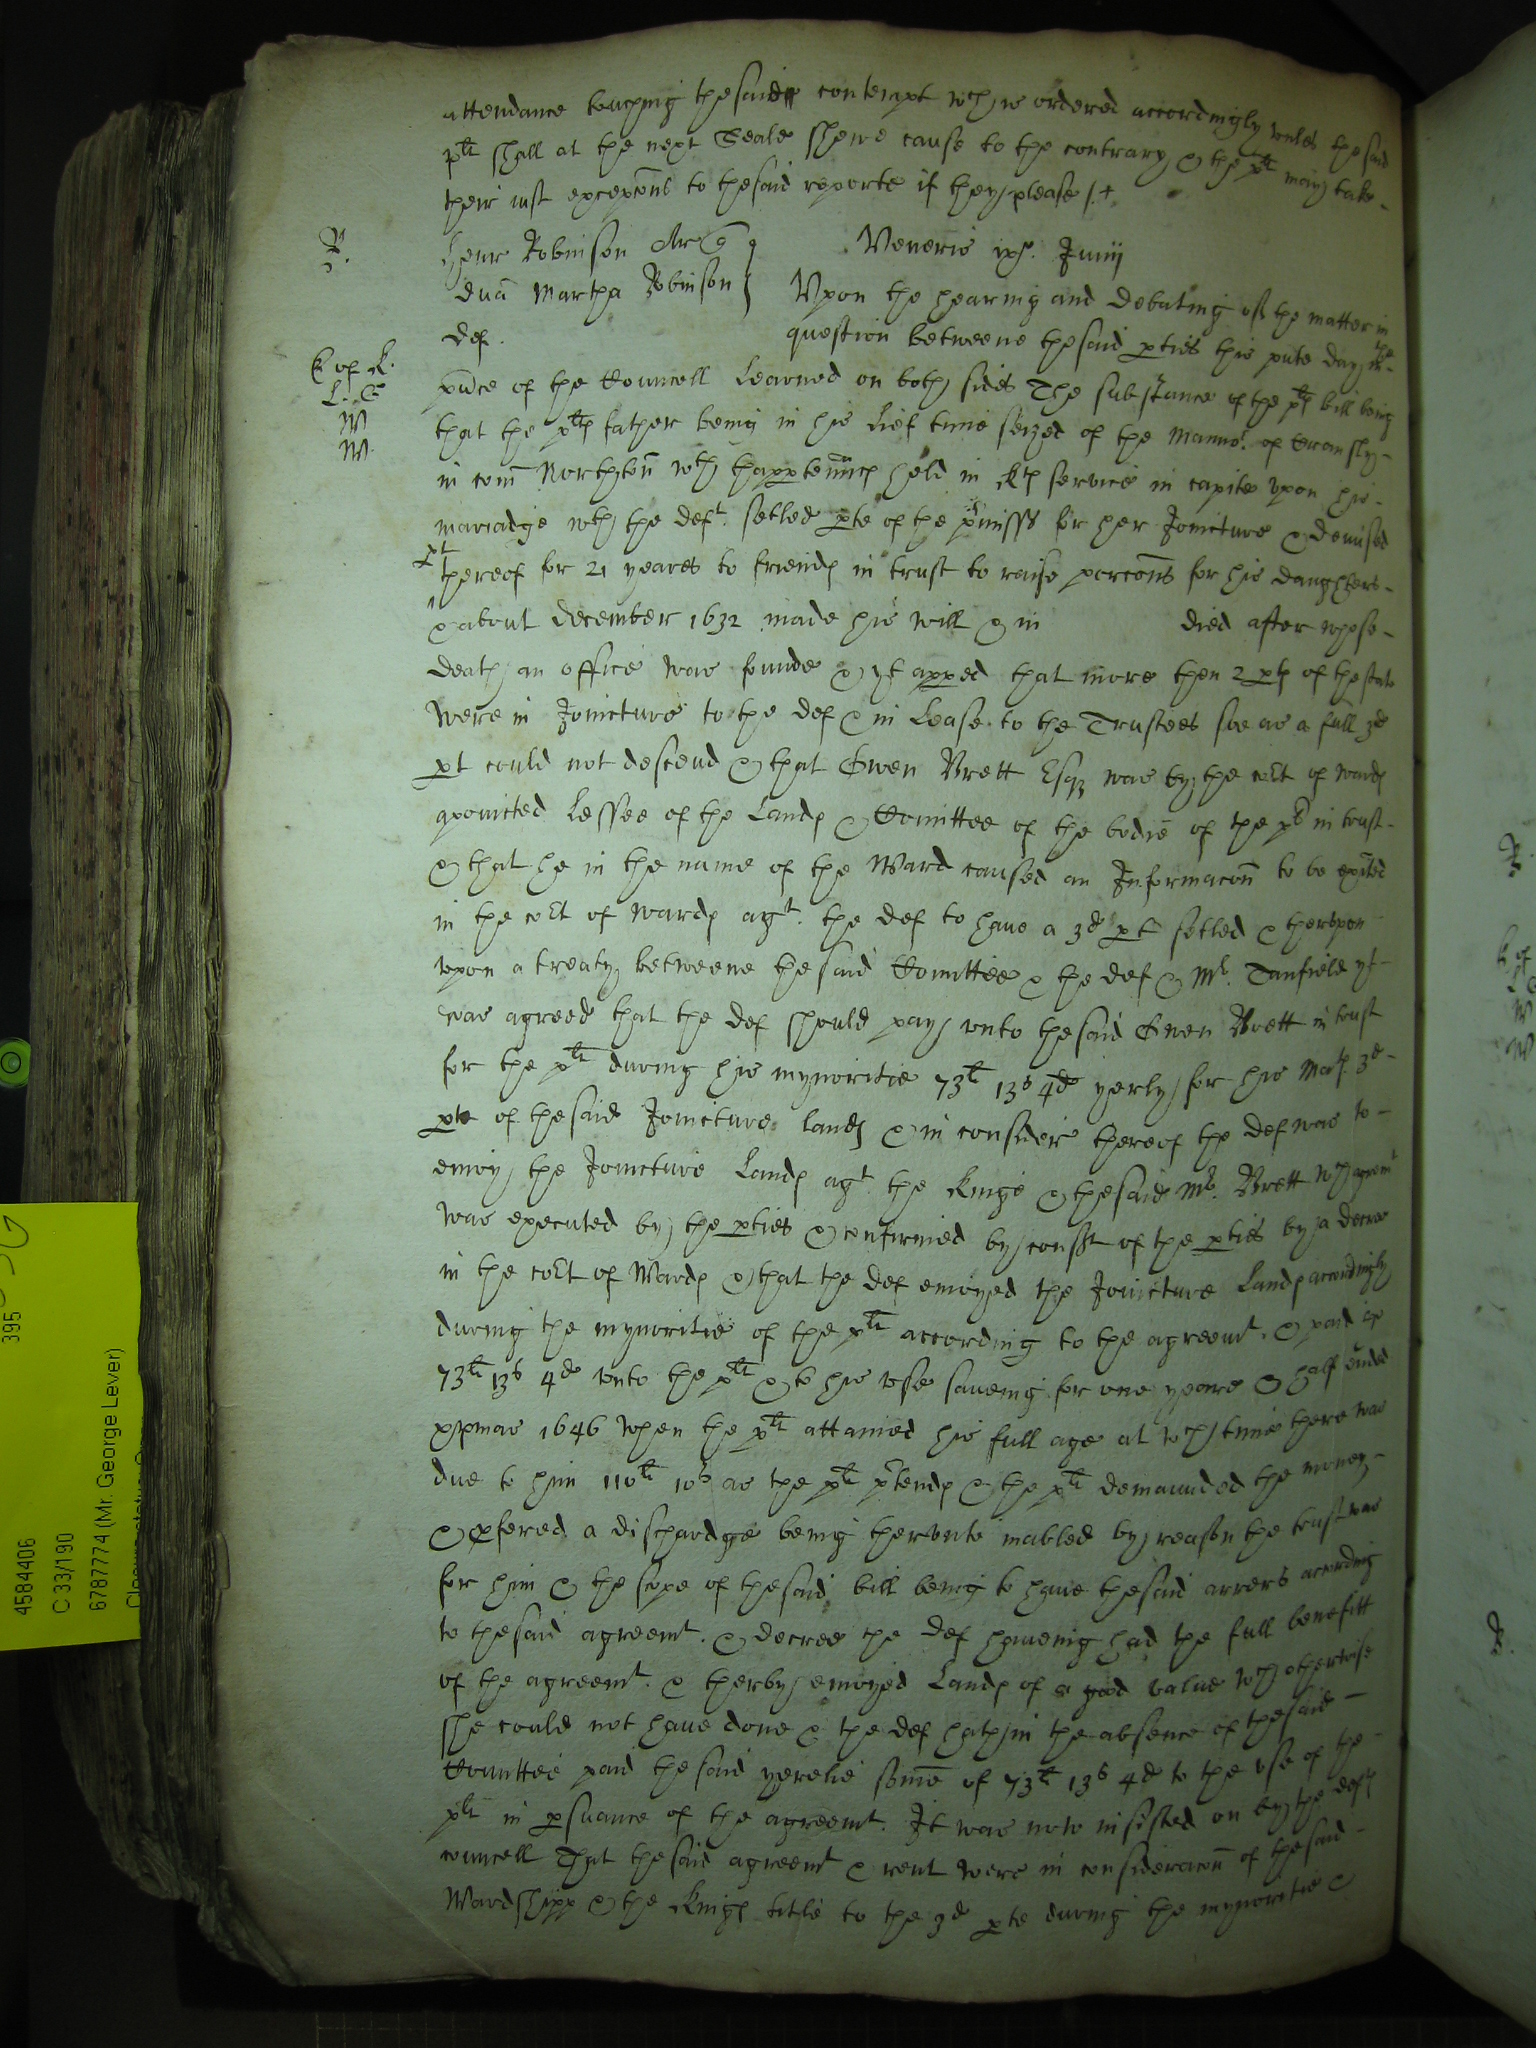 attendance touching thesaide contempt wch is ordered accordingly unles thesaid
plt shall at the next Seale shewe cause to the contrary & the plt may take
their iust excepcons to thesaid reporte if they please /.+
R. Henr Robinson Ar
quer
Martha Robinson
def.
Veneris ixo. Junij
Vpon the hearing and debating of the matter in
question betweene thesaid pties this pnte day in the
K of R.
L. G
W
W
pnce of the Councell Learned on both sides The substance of the plts bill being
that the plts father being in his lief time seized of the Mannor of Cransly
in com Northton wth thapptennncs held in kts service in capite vpon his
mariadge wth the deft. setled pte of the pmisss for her Joincture & demised
pt thereof for 21 yeares to friends in trust to raise porcons for his daughters
& about December 1632 made his will & in died after whose
death an office was founde & yt apped that more then 2 pts of thestate
were in Joincture to the def & in Lease to the Trustees soe as a full 3d
pt could not descend & that Gwen Brett Esqr was by the cort of wards
apointed Lessee of the Lands & Comittee of the bodie of the plt in trust
& that he in the name of the Ward caused an Informacon to be exited
in the cort of wards agt. the def to have a 3d pt setled & thervpon
vpon a treaty betweene thesaid Comittee & the def & Mr. Tanfield yt
was agreed that the def should pay vnto thesaid Gwen Brett in trust
for the plt during his mynoritie 73li 13s 4d yerly for his Mats. 3d
pte of thesaide Joincture lands & in consider thereof the def was to
enioy the Joincture Lands agt. the Kinge & thesaide Mr. Brett wch agreemt
was executed by the pties & confirmed by const of the pties by a decree
in the cort of Wards & that the def enioyed the Joincture Lands accordingly
during the mynoritie of the plt according to the agreemt. & paid
73li 13s 4d vnto the plt & to his vse saveing for one yeare & half ended
xpmas 1646 when the plt attained his full age at wch time there was
due to him 110li 10s as the plt ptends & the plt demaunded the money
& pfered a dischardge being thervnto inabled by reason the trust was
for him & the scope of thesaid bill being to have thesaid arrers according
to thesaid agreemt. & decree the def haveing had the full benefitt
of the agreemt. & therby enioyed Lands of a good value wch otherwise
she could not have done & the def hath in the absence of thesaid
Comittee paid thesaid yerelie some of 73li 13s 4d to the vse of the
plt in psuance of the agreemt. It was now insisted on by the defts
councell That thesaid agreemt & rent were in consideracon of thesaid
Wardshipp & the Kings title to the 3d pte during the mynoritie &
4584406
C 33/190
395
6787774 (Mr. George Lever)